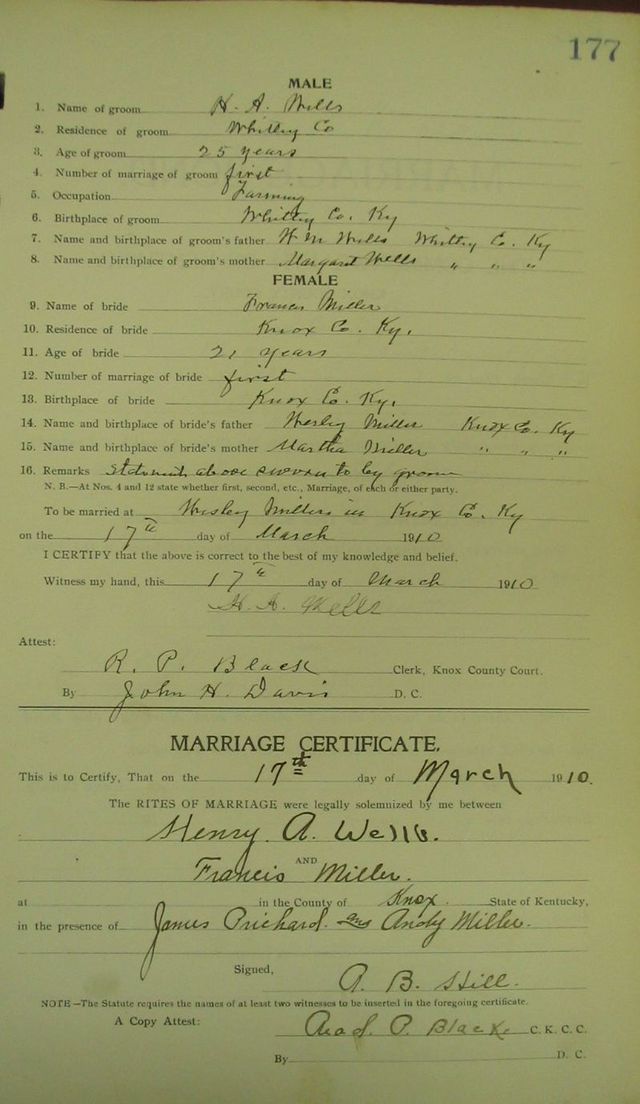 177
MALE
1. Name of groom H. A. Wells
2. Residence of groom Whitley Co
3. Age of groom 25 years
4. Number of marriage of groom first
5. Occupation Farming
6. Birthplace of groom Whitley Co. Ky
7. Name and birthplace of groom's father W M Wells Whitley Co. Ky
8. Name and birthplace of groom's mother Margaret Wells " " "
FEMALE
9. Name of bride Francis Miller
10. Residence of bride Knox Co. Ky.
11. Age of bride 21 years
12. Number of marriage of bride first
13. Birthplace of bride Knox Co. Ky.
14. Name and birthplace of bride's father Wesley Miller Knox Co. Ky
15. Name and birthplace of bride's mother Martha Miller " " "
16. Remarks Statement above sworn to by groom
N. B.—At Nos. 4 and 12 state whether first, second, etc., Marriage, of each or either party.
To be married at Wesley Millers in Knox Co. Ky
on the 17th day of March 1910
I CERTIFY that the above is correct to the best of my knowledge and belief.
Witness my hand, this 17th day of March 1910
H. A. Wells
Attest:
R. P. Black Clerk, Knox County Court.
By John H. Davis D. C.
MARRIAGE CERTIFICATE.
This is to Certify, That on the 17th day of March 1910.
The RITES OF MARRIAGE were legally solemnized by me between
Henry. A. Wells.
AND
Francis Miller.
at in the County of Knox. State of Kentucky,
in the presence of James Prichard. and Andy Miller.
Signed,
A. B. Hill.
NOTE—The Statute requires the names of at least two witnesses to be inserted in the foregoing certificate.
A Copy Attest: P. Black C. K. C. C.
By D. C.